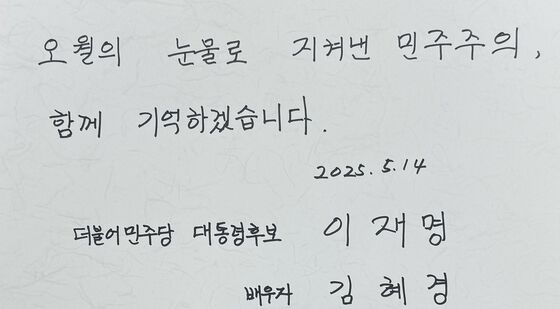 오월의 눈물로 지켜낸 민주주의,
함께 기억하겠습니다.
2025. 5. 14
더불어민주당 대통령후보 이재명
배우자 김혜경